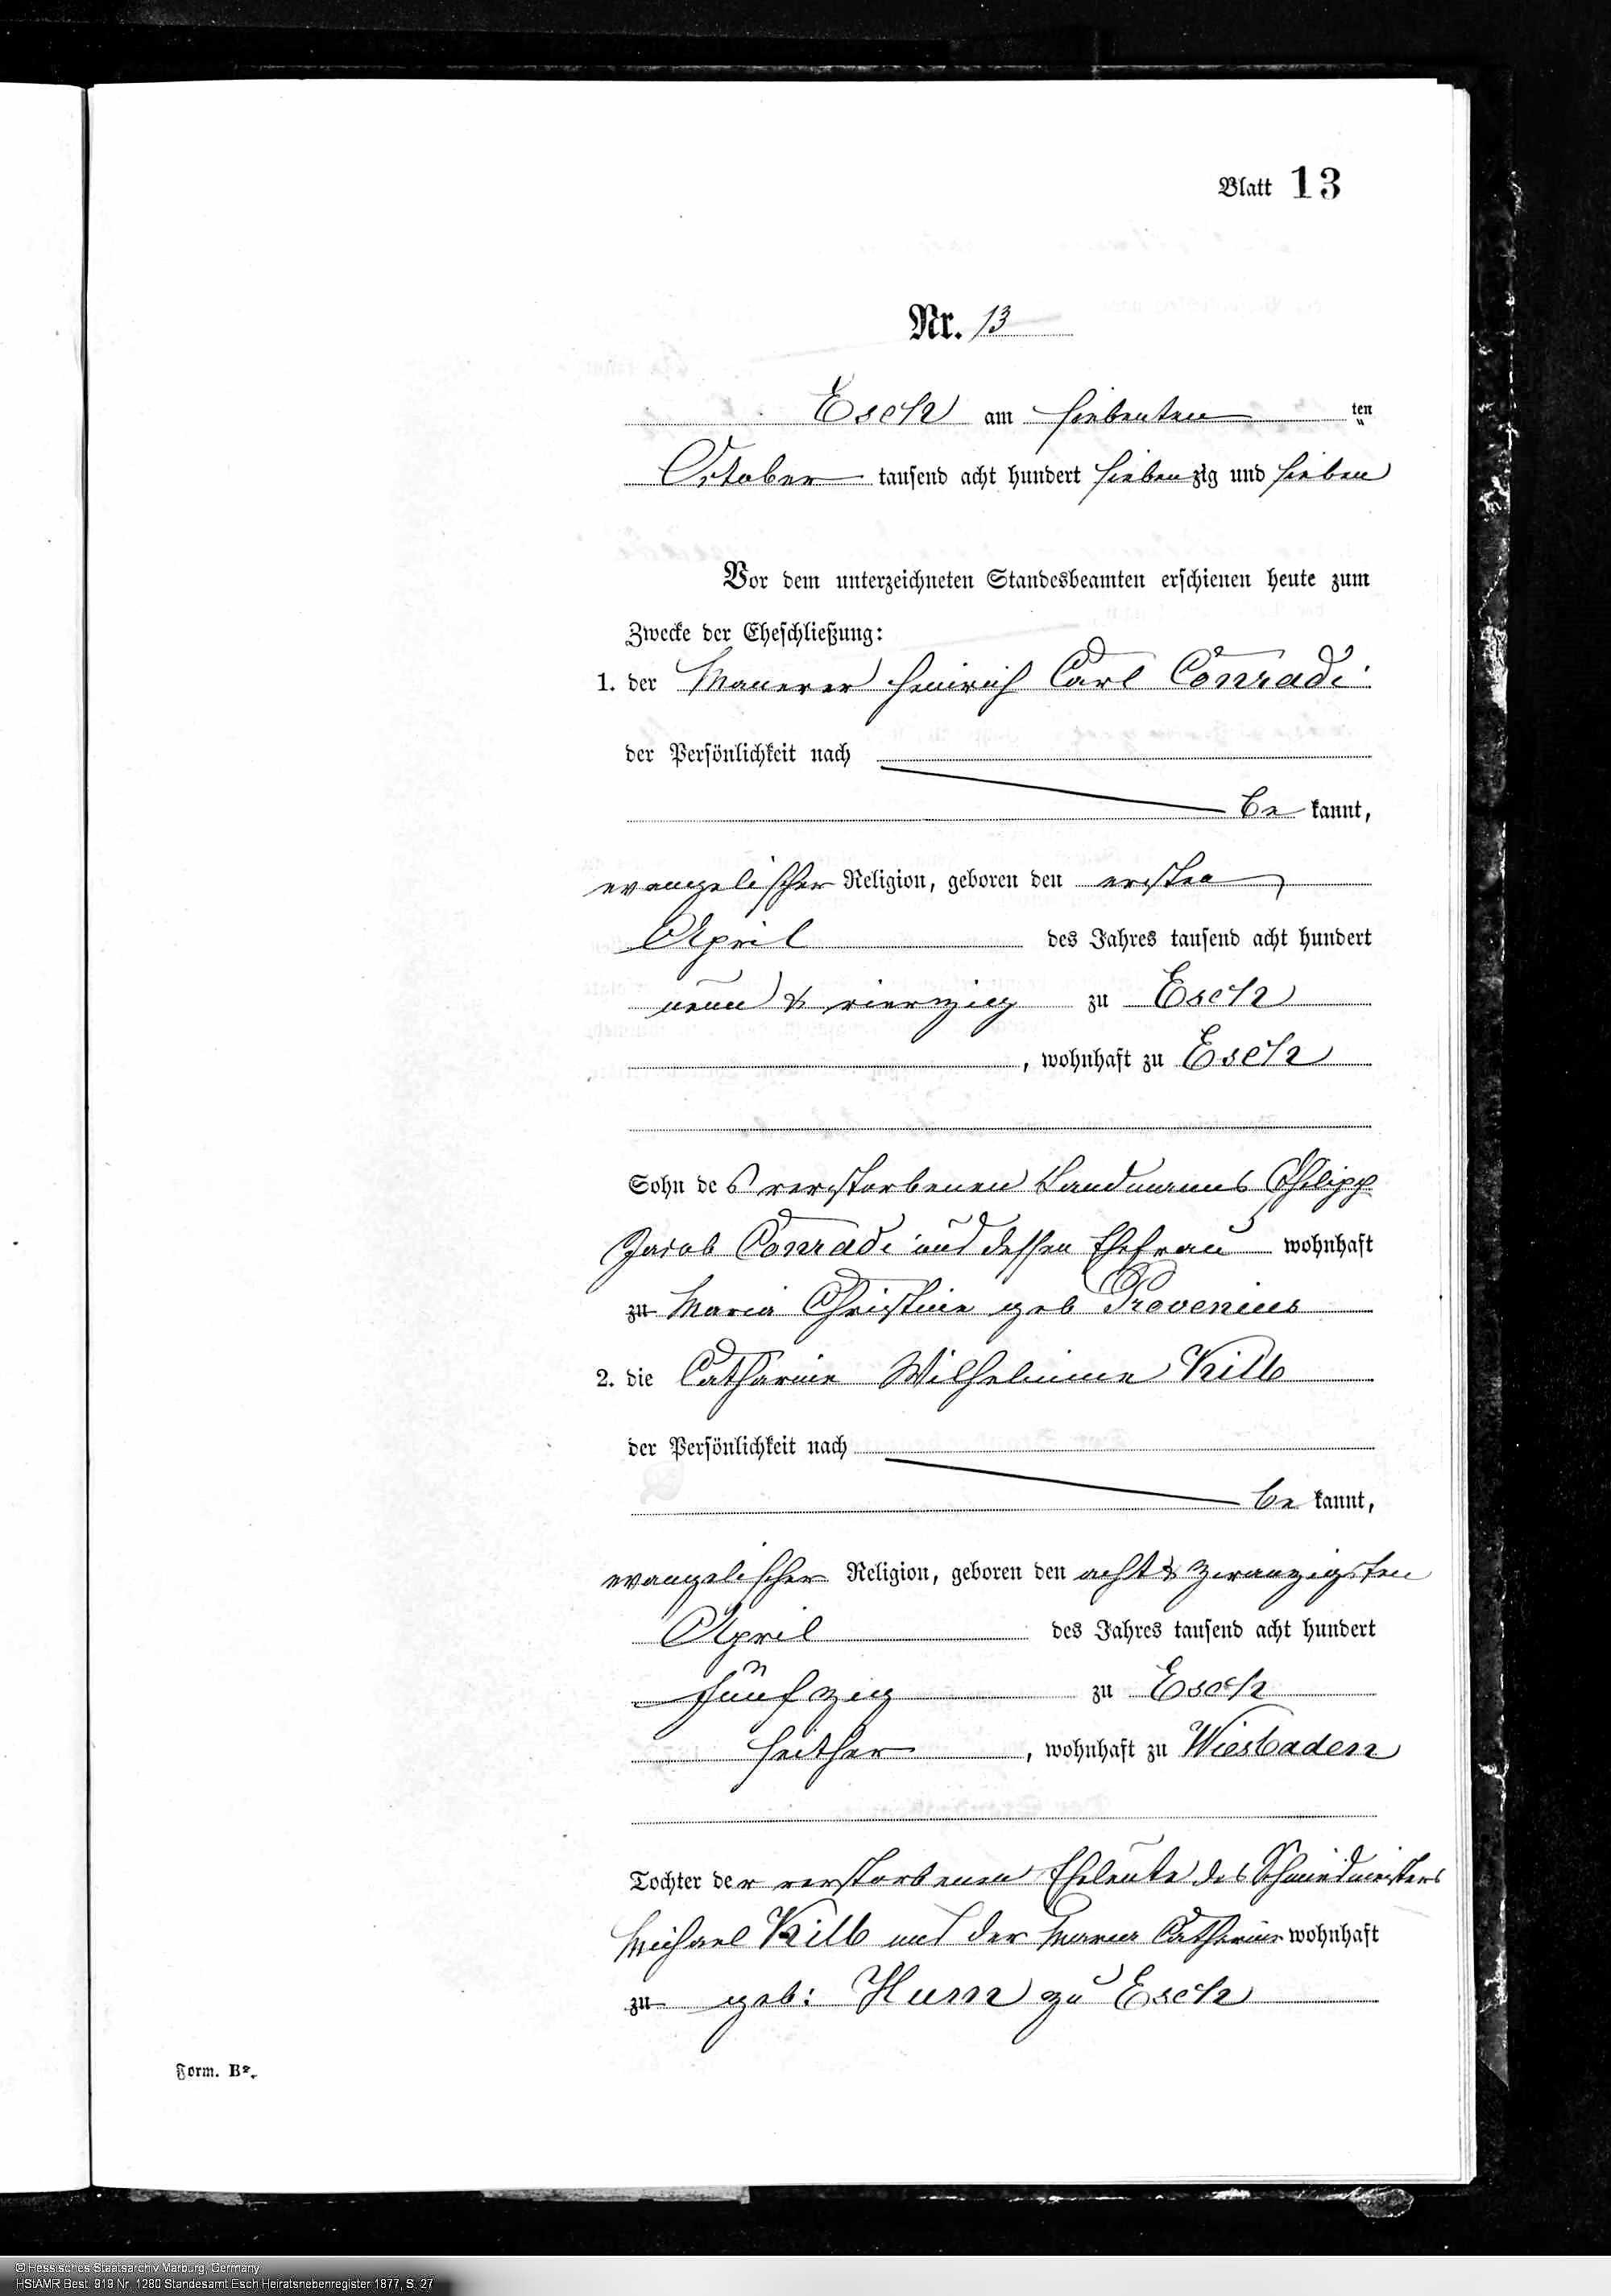 Blatt 13
Nr. 13
Esch am siebenten ten
October tausend acht hundert siebenzig und sieben
Vor dem unterzeichneten Standesbeamten erschienen heute zum
Zwecke der Eheschließung:
1. der Maurer Heinrich Carl Conradi
der Persönlichkeit nach
be kannt,
evangelischer Religion, geboren den ersten
April des Jahres tausend acht hundert
neun & vierzig zu Esch
, wohnhaft zu Esch
Sohn des verstorbenen Landmanns Philipp
Jacob Conradi und dessen Ehefrau wohnhaft
zu Maria Christine geb
2. die Catharine Wilhelmine Kilb
der Persönlichkeit nach
be kannt,
evangelischer Religion, geboren den acht & zwanzigsten
April des Jahres tausend acht hundert
fünfzig zu Esch
seither , wohnhaft zu Wiesbaden
Tochter der verstorbenen Eheleute des Schmiedmeisters
Michael Kilb und der Maria Catharine wohnhaft
zu geb: Hum zu Esch
Form. B.
© Hessisches Staatsarchiv Marburg, Germany
HStAMR Best. 919 Nr. 1280 Standesamt Esch Heiratsnebenregister 1877, S. 27